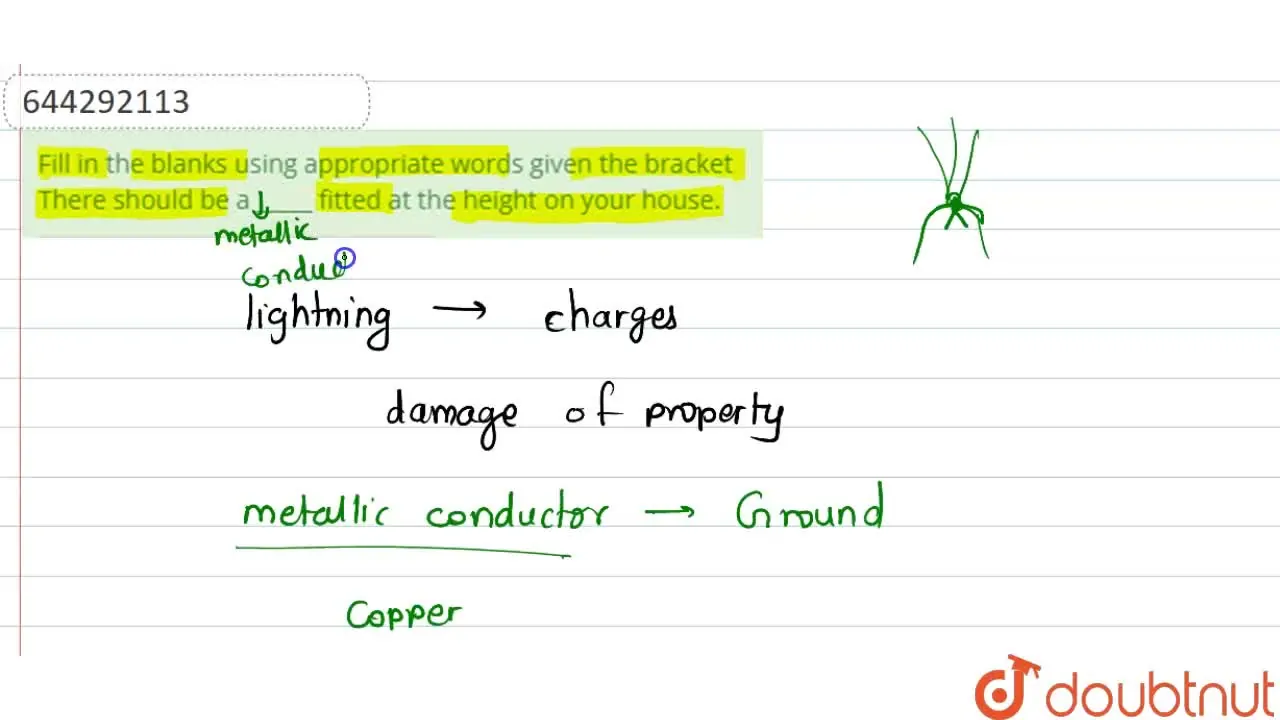 644292113
Fill in the blanks using appropriate words given the bracket
There should be a ____ fitted at the height on your house.
metallic
conduc
lightning → charges
damage of property
metallic conductor → Ground
Copper
doubtnut